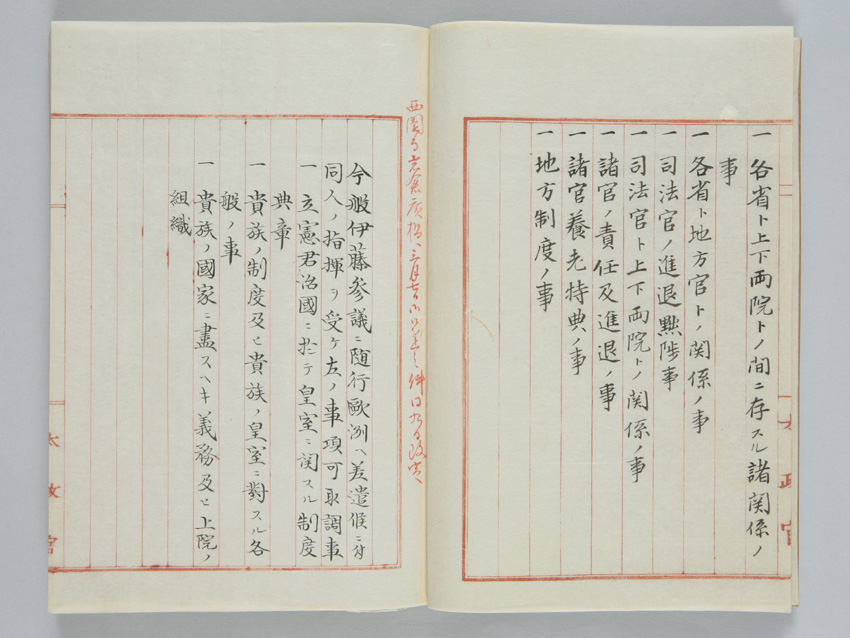 一各省ト上下両院トノ間ニ存スル諸関係ノ
事
一各省ト地方官トノ関係ノ事
一司法官ノ進退黙陟事
一司法官ト上下両院トノ関係ノ事
一諸官ノ責任及進退ノ事
一諸官養老特典ノ事
一地方制度ノ事
太政官
西園寺岩倉廣橋三月
今般伊藤参議ニ随行歐洲ヘ差遣候ニ付
同人ノ指揮ヲ受ケ左ノ事項可取調事
一立憲君治國ニ於テ皇室ニ関スル制度
典章
一貴族ノ制度及ヒ貴族ノ皇室ニ對スル各
般ノ事
一貴族ノ國家ニ盡スヘキ義務及ヒ上院ノ
組織
太政官